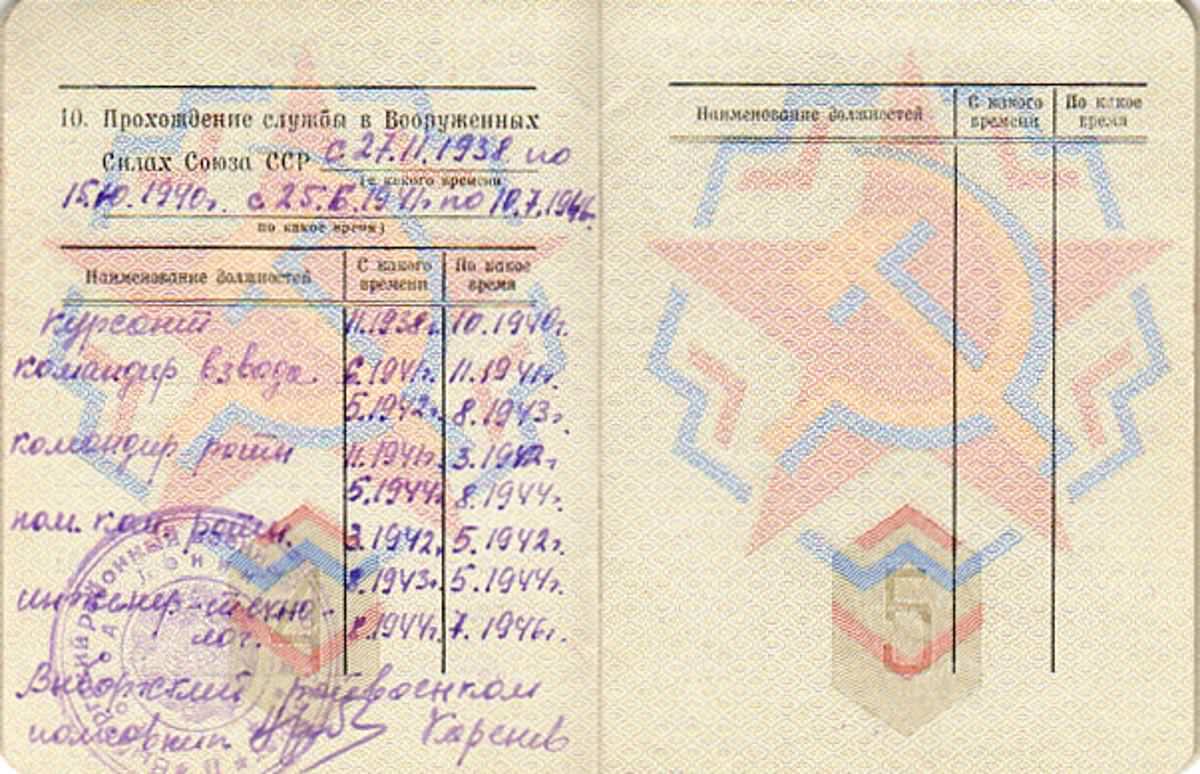 10. Прохождение службы в Вооруженных
Силах Союза ССР с 27.11.1938 по
(с какого времени
15.10.1940г. с 25.6.1941г по 10.7.1946г.
по какое время)
Наименование должностей С какого времени По какое время
курсант 11.1938г. 10.1940г.
командир взвода 6.1941г. 11.1941г.
5.1942г. 8.1943г.
командир роты 11.1941г. 3.1942г.
5.1944г. 8.1944г.
пом. ком. роты. 3.1942г. 5.1942г.
8.1943г. 5.1944г.
инженер-техно-
лог. 8.1944г. 7.1946г.
Выборгский райвоенком
полковник
4
Наименование должностей С какого времени По какое время
5